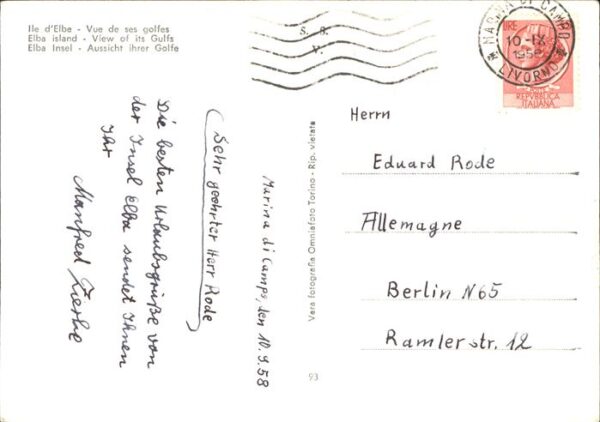 Ile d'Elbe - Vue de ses golfes
Elba island - View of its Gulfs
Elba Insel - Aussicht ihrer Golfe
S. S.
V.
MARINA DI CAMPO
10-IX
LIVORNO
LIRE
REPVBBLICA
ITALIANA
Marina di Campo, den 10.9.58
(Sehr geehrter Herr Rode
Die besten Urlaubsgrüße von
der Insel Elba sendet Ihnen
Ihr
Manfred
Vera fotografia Omniafoto Torino - Rip. vietata
93
Herrn
Eduard Rode
Allemagne
Berlin N65
Ramlerstr. 12